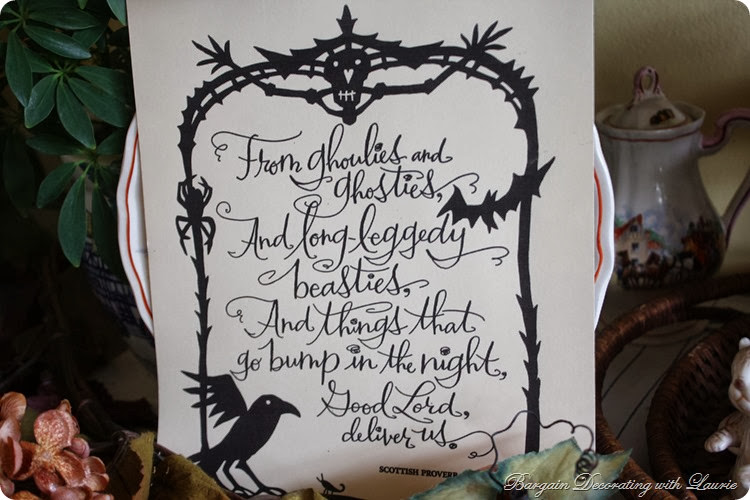 From ghoulies and
ghosties,
And long-leggedy
beasties,
And things that
go bump in the night,
Good Lord,
deliver us.
SCOTTISH PROVERB
Bargain Decorating with Laurie